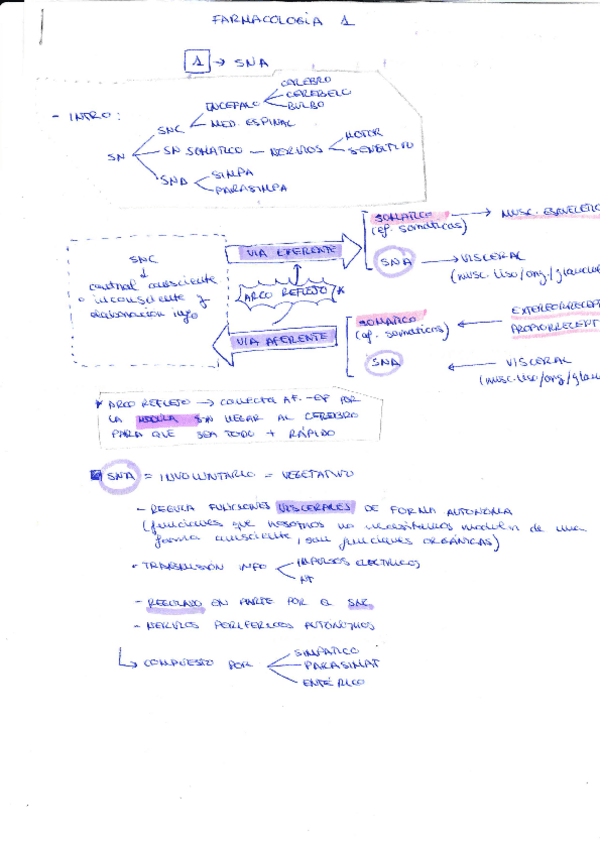 FARMACOLOGÍA 1
1 → SNA
- INTRO:
SN
SNC
ENCEFALO
CEREBRO
CEREBELO
BULBO
MED. ESPINAL
SN SOMATICO - NERVIOS
MOTOR
SENSITIVO
SNA
SIMPA
PARASIMPA
SNC
control consciente
o inconsciente y
elaboración info
VIA EFERENTE
SOMATICO → MUSC. ESQUELETICO
(ef. somaticas)
SNA → VISCERAL
(musc. liso/org/glandu
ARCO REFLEJO *
VIA AFERENTE
SOMATICO ← EXTERIORRECEPT
(af. somaticas) PROPIORRECEPT
SNA ← VISCERAL
(musc. liso/org/glandu
* ARCO REFLEJO → CONECTA AF. - EF POR
LA MEDULA SIN LLEGAR AL CEREBRO
PARA QUE SEA TODO + RÁPIDO
SNA = INVOLUNTARIO = VEGETATIVO
- REGULA FUNCIONES VISCERALES DE FORMA AUTONOMA
(funciones que nosotros no necesitamos modular de una
forma consciente, son funciones ORGÁNICAS)
- TRANSMISIÓN INFO
IMPULSOS ELECTRICOS
NT
- REGULADO EN PARTE POR EL SNC
- NERVIOS PERIFERICOS AUTONOMOS
↳ COMPUESTO POR
SIMPATICO
PARASIMPAT
ENTÉRICO